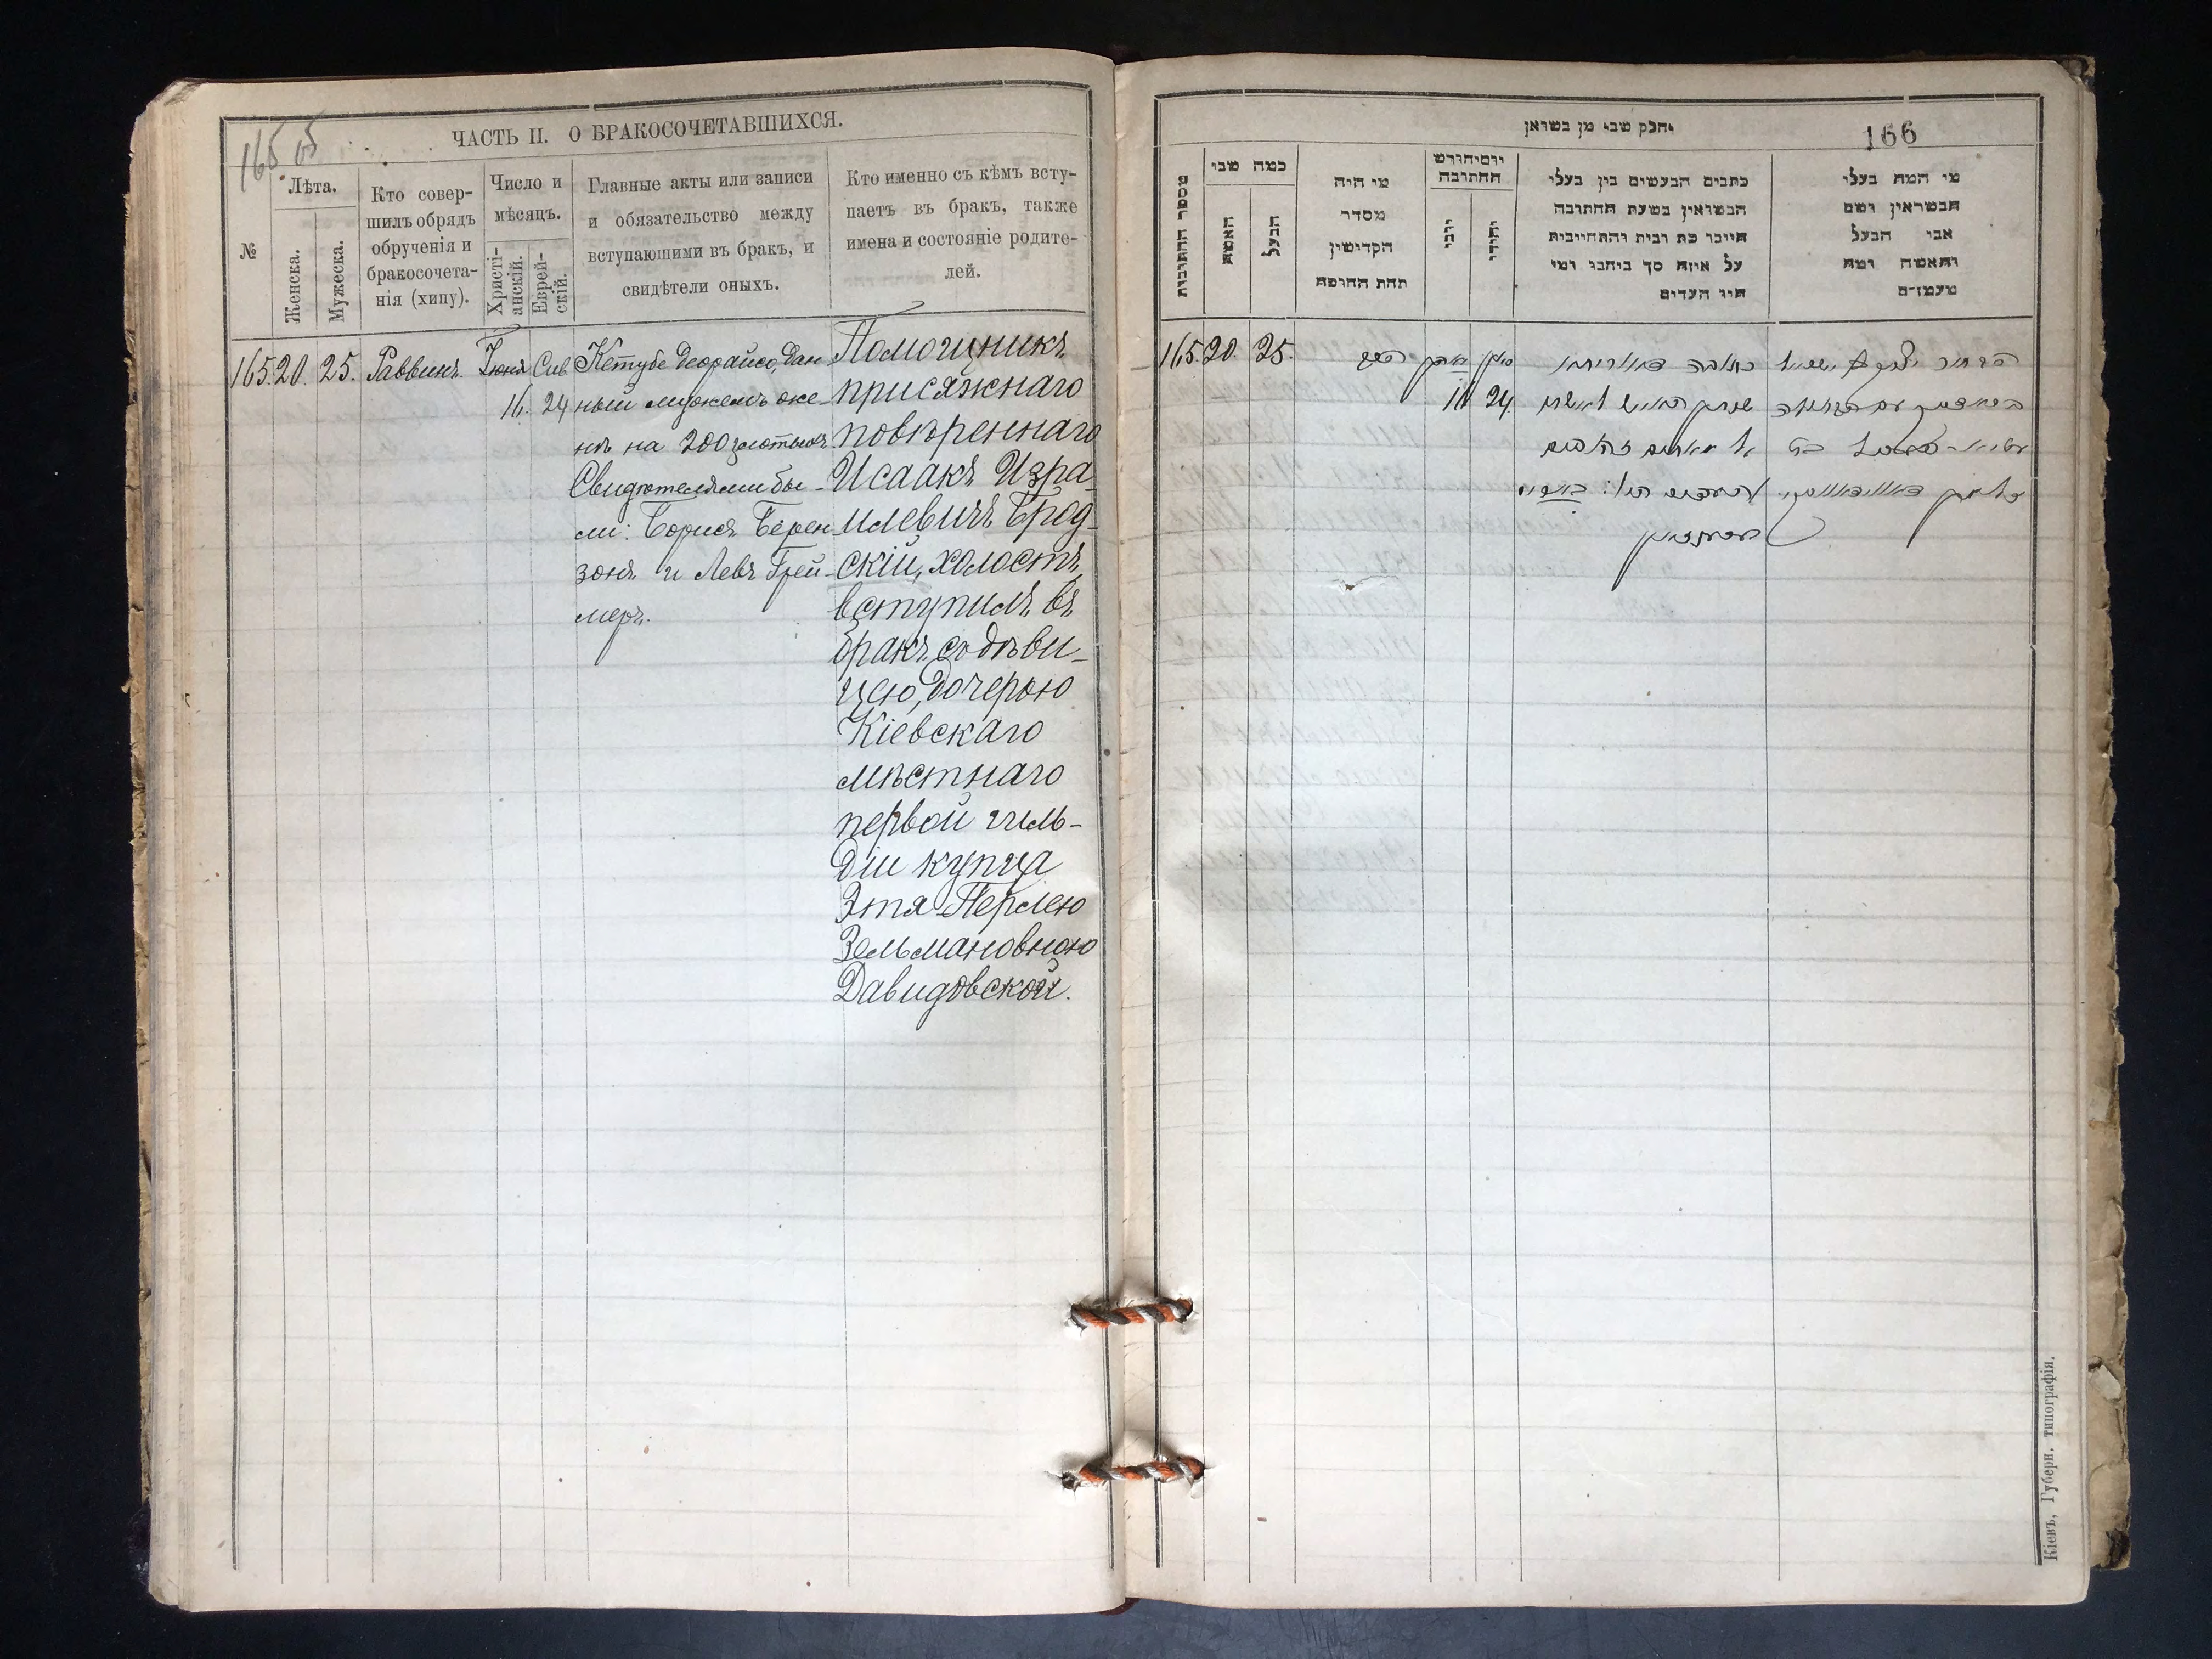 165
65
ЧАСТЬ II. О БРАКОСОЧЕТАВШИХСЯ.
№
Лѣта.
Женска.
Мужеска.
Кто совер-
шилъ обрядъ
обрученія и
бракосочета-
нія (хипу).
Число и
мѣсяцъ.
Христі-
анскій.
Еврей-
скій.
Главные акты или записи
и обязательство между
вступающими въ бракъ, и
свидѣтели оныхъ.
Кто именно съ кѣмъ всту-
паетъ въ бракъ, также
имена и состояніе родите-
лей.
165. 20. 25. Раввинъ. Іюня Сив.
16. 24
Кетубе деорайсо, дан-
ный мужемъ же-
нѣ на 200 злотыхъ
Свидѣтелями бы-
ли: Борисъ Берен-
зонъ и Левъ Грей-
меръ.
Помощникъ
присяжнаго
повѣреннаго
Исаакъ Изра-
илевичъ Брод-
скій, холостъ,
вступилъ въ
бракъ съ дѣви-
цею, дочерью
Кіевскаго
мѣстнаго
первой гиль-
діи купца
Этя-Перлею
Зельмановною
Давидовской.
166
וחלק שבי מן בשואן
מספר החתונות
כמה שבי
האשה
הבעל
מי היה
מסדר
הקדישין
תחת החופה
יוםיהורש
החתובה
יוכי
יהודי
כתבים הבעשים בין בעלי
הבשואין בשעת החתובה
על איזה סך ביתבו ומי
היו העדים
מי המה בעלי
הבשראין ושם
אבי הבעל
והאשה ומה
מעמדם
165. 20. 25.
16 24
סיון
כתובה דאורייתא
Кіевъ, Губерн. типографія.